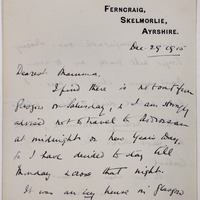 FERNCRAIG,
SKELMORLIE,
AYRSHIRE.
Dec 29 1915
Dearest Mamma,
I find there is no boat from
Glasgow on Saturday, & I am strongly
advised not to travel to Ardrossan
at midnight on New Years Day,
so I have decided to stay till
Monday, & cross that night.
It was an icy house in Glasgow